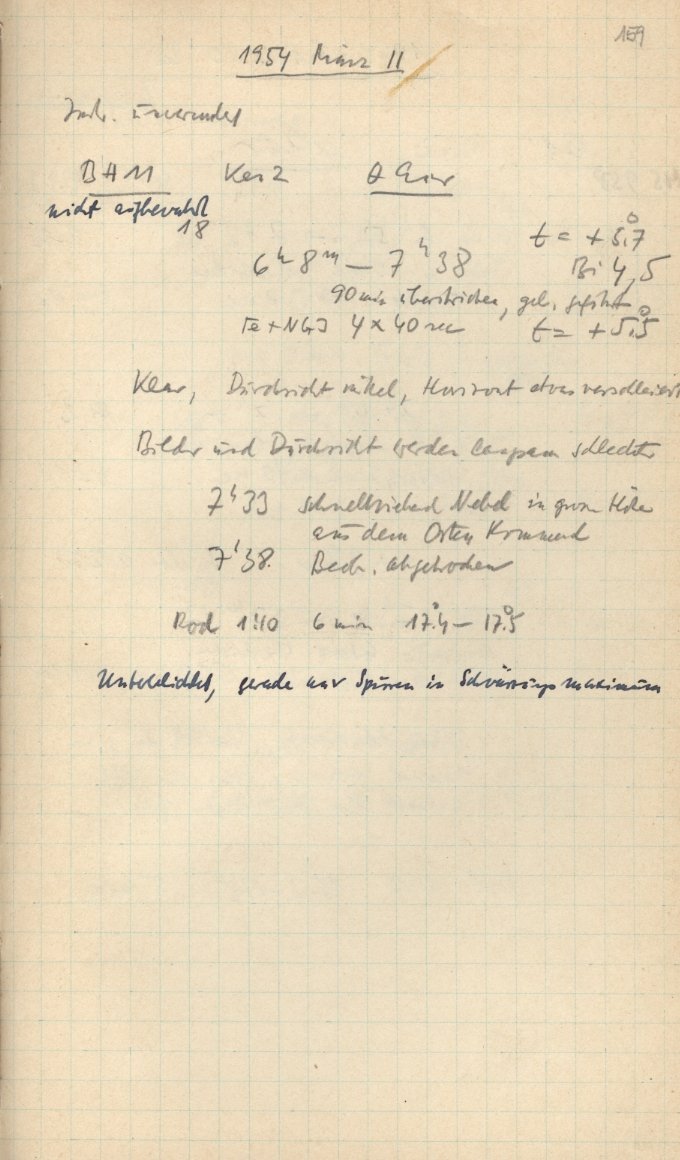 159
1954 März 11
Instr. unverändert
BA 11 Kas 2 θ Car
nicht aufbewahrt
18
t = + 5°,7
6h 8m — 7h 38 Bi 4,5
90 min überstrichen, gel. geführt
Fe + NGJ 4 x 40 sec t = + 5°,5
Klar, Durchsicht mittel, Horizont etwas verschleiert
Bilder und Durchsicht werden langsam schlechter
7h 33 schnellziehend Nebel in gross Höhe
aus dem Osten kommend
7h 38. Beob. abgebrochen
Rod 1:10 6 min 17°,4 — 17°,5
Unterbelichtet, gerade nur Spuren in Schwärzungsmaximum